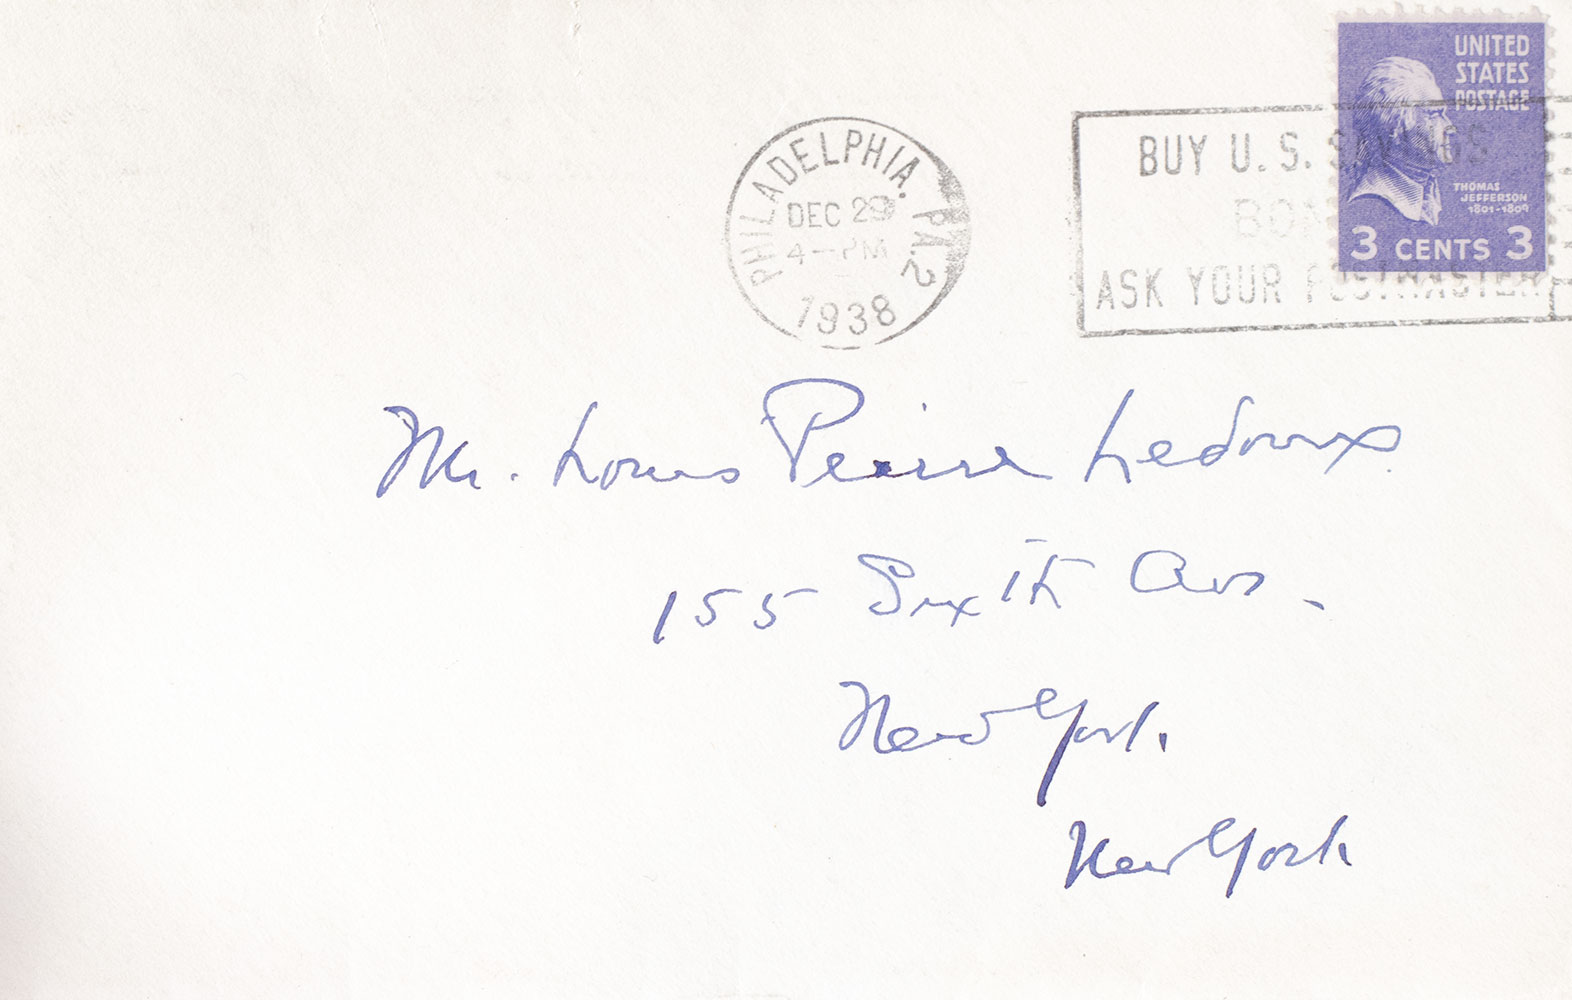 UNITED
STATES
POSTAGE
THOMAS
JEFFERSON
1801-1809
3 CENTS 3
PHILADELPHIA, PA. 2
DEC 29
4-PM
1938
BUY U.S. SAVINGS
BONDS
ASK YOUR POSTMASTER
Mr. Louis Pierre Ledoux
155 Sixth Ave.
New York.
New York